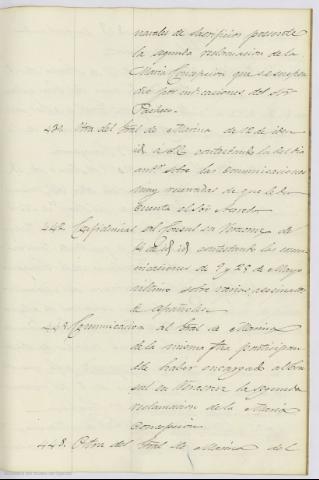 navales de sacrificios presente
la segunda reclamacion de la
Maria Concepcion que se suspen
dio por indicaciones del Sr
Pacheco.
Otra del Gral de Marina de 12 de
id a 62 contestando la del dia
antr sobre las comunicaciones
muy reservadas de que le dio
cuenta el Señor
442. Confidencial al Consul en Veracruz de
4 de id id contestando las comu
nicaciones de 9 y 29 de Mayo
ultimo sobre varios asesinatos
de españoles
Comunicacion al Gral de Marina
de la misma fha participan
dole haber encargado al Con
sul en Veracruz la segunda
reclamacion de la Maria
Concepcion.
448. Otra del Gral de Marina del